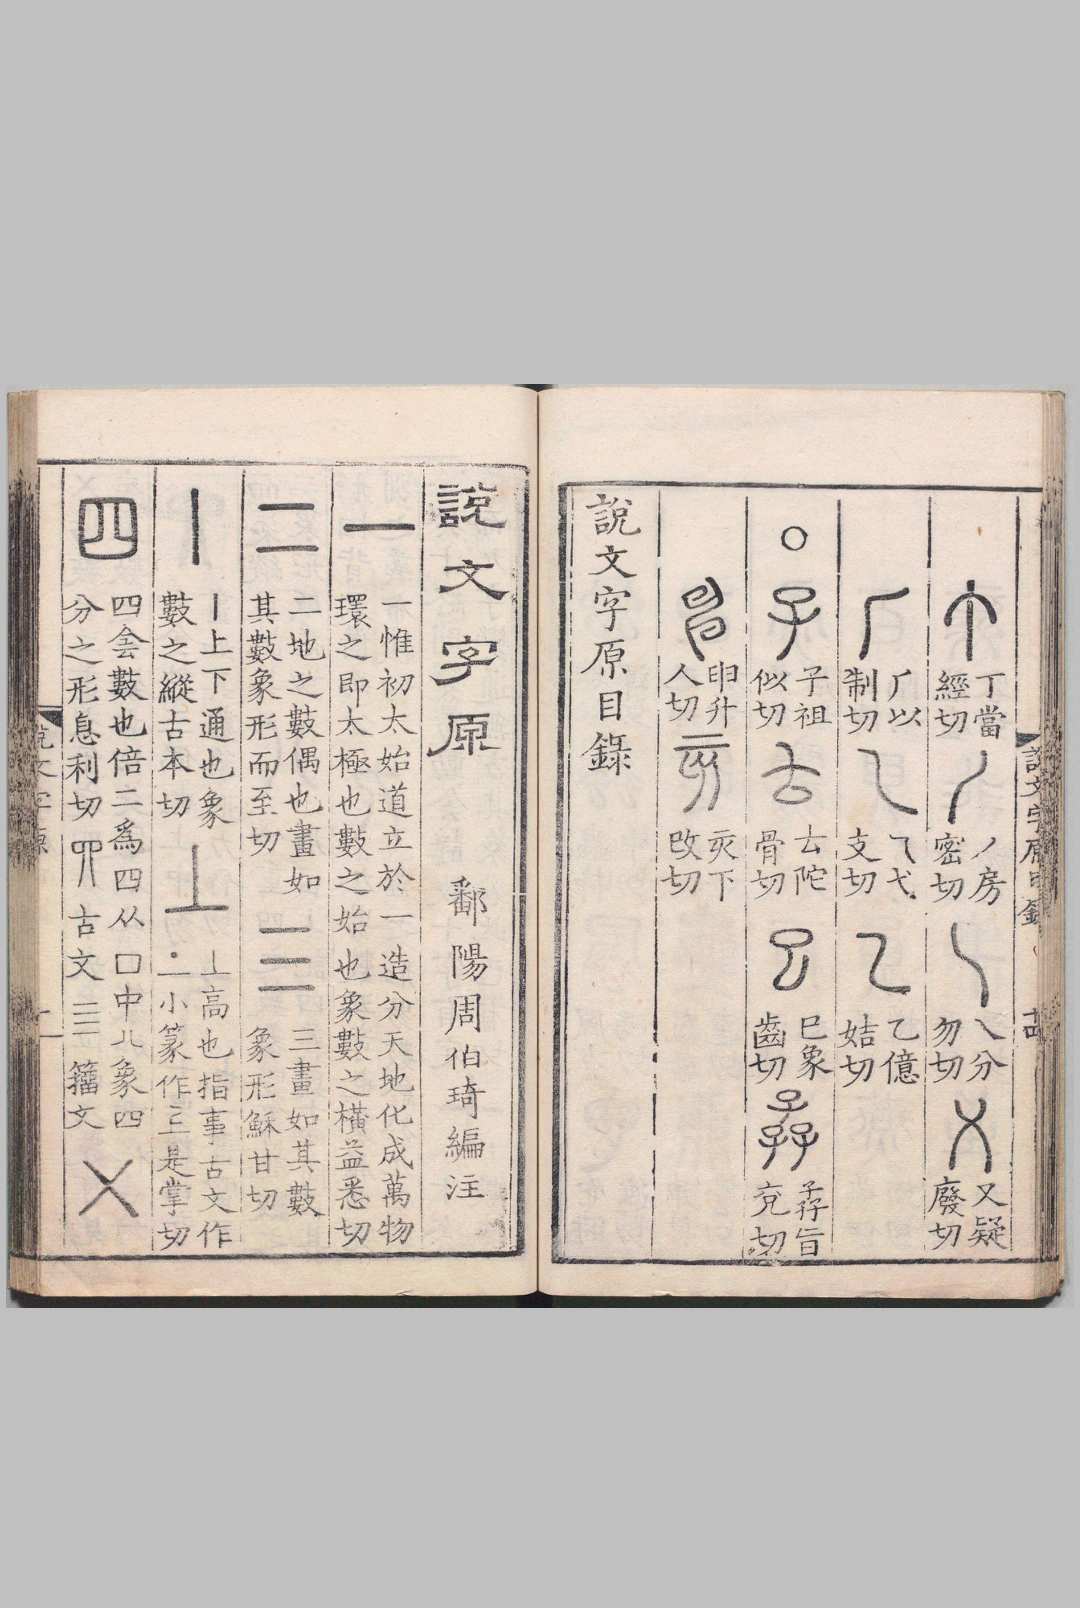 丁當經切
丿房密切
乀分勿切
乂疑廢切
𠂆以制切
乁弋支切
乙億姞切
子祖似切
𠫓陀骨切
巳象齒切
孨旨兗切
申升人切
亥下改切
說文字原目錄
說文字原目錄
十四
說文字原
鄱陽周伯琦編注
一 一惟初太始道立於一造分天地化成萬物
環之即太極也數之始也象數之橫益悉切
二 二地之數偶也畫如
其數象形而至切
三 三畫如其數
象形穌甘切
丨 丨上下通也象
數之縱古本切
丄 丄高也指事古文作
二小篆作上是掌切
四 四侌數也倍二爲四从口中八象四
分之形息利切 古文 亖 籀文
㐅
說文字原
一